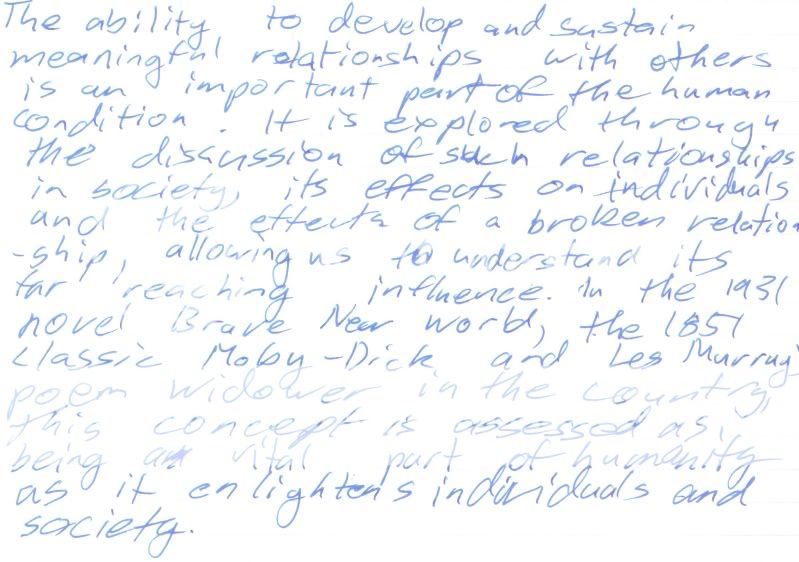 The ability to develop and sustain
meaningful relationships with others
is an important part of the human
condition. It is explored through
the discussion of such relationships
in society, its effects on individuals
and the effects of a broken relation
-ship, allowing us to understand its
far reaching influence. In the 1931
novel Brave New World, the 1851
classic Moby-Dick and Les Murray'
poem widower in the country,
this concept is assessed as,
being an vital part of humanity
as it enlightens individuals and
society.